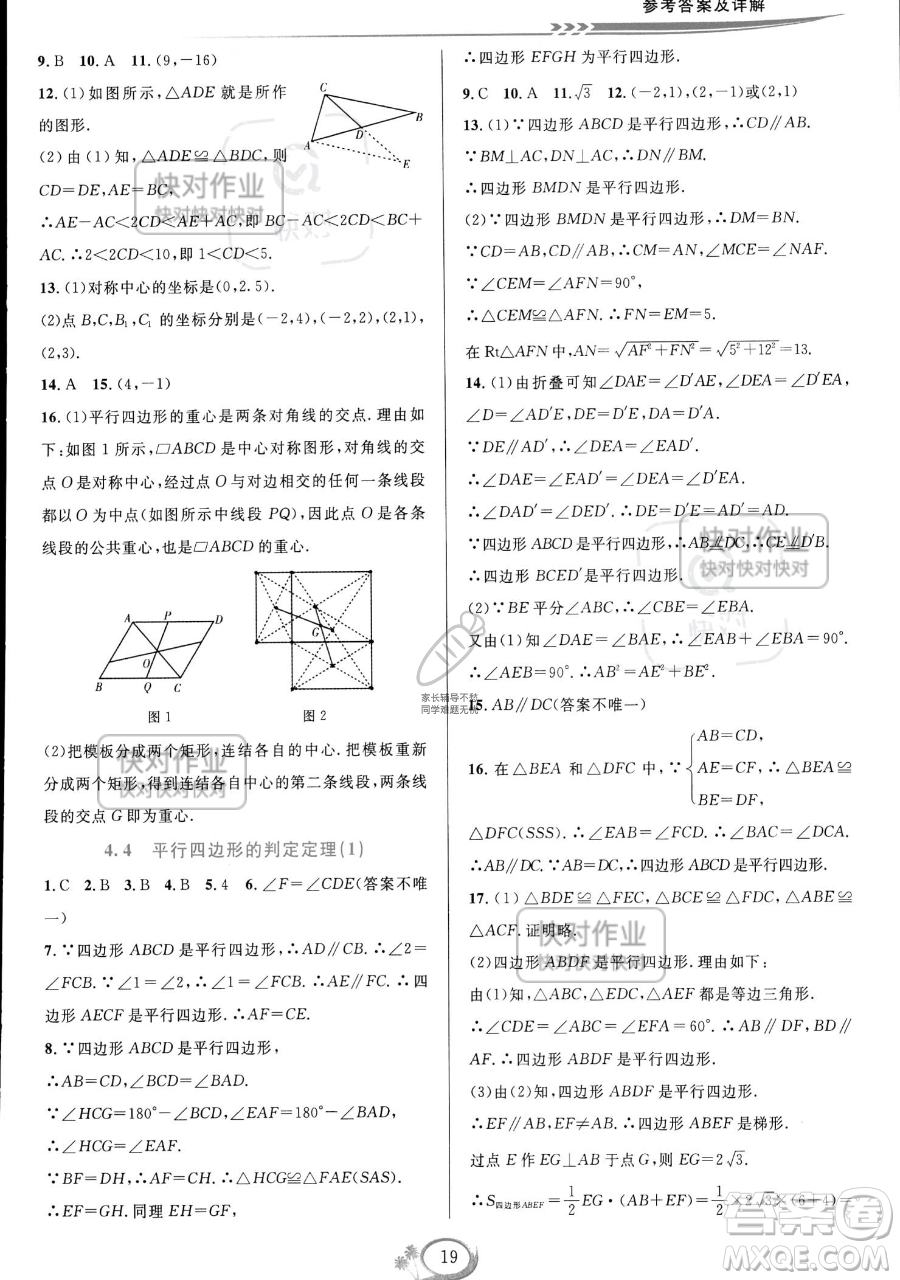 参考答案及详解
9. B 10. A 11. (9,-16)
12. (1)如图所示,△ADE 就是所作
的图形.
(2)由(1)知,△ADE≌△BDC,则
CD=DE,AE=BC,
∴AE-AC<2CD<AE+AC,即 BC-AC<2CD<BC+
AC. ∴2<2CD<10,即 1<CD<5.
C
B
D
A
E
13. (1)对称中心的坐标是(0,2.5).
(2)点 B,C,B₁,C₁ 的坐标分别是(-2,4),(-2,2),(2,1),
(2,3).
14. A 15. (4,-1)
16. (1)平行四边形的重心是两条对角线的交点. 理由如
下:如图 1 所示,▱ABCD 是中心对称图形,对角线的交
点 O 是对称中心,经过点 O 与对边相交的任何一条线段
都以 O 为中点(如图所示中线段 PQ),因此点 O 是各条
线段的公共重心,也是▱ABCD 的重心.
A P D
O
B Q C
图 1
G
图 2
(2)把模板分成两个矩形,连结各自的中心. 把模板重新
分成两个矩形,得到连结各自中心的第二条线段,两条线
段的交点 G 即为重心.
4.4 平行四边形的判定定理(1)
1. C 2. B 3. B 4. B 5. 4 6. ∠F=∠CDE(答案不唯
一)
7. ∵四边形 ABCD 是平行四边形,∴AD∥CB. ∴∠2=
∠FCB. ∵∠1=∠2,∴∠1=∠FCB. ∴AE∥FC. ∴四
边形 AECF 是平行四边形. ∴AF=CE.
8. ∵四边形 ABCD 是平行四边形,
∴AB=CD,∠BCD=∠BAD.
∵∠HCG=180°-∠BCD,∠EAF=180°-∠BAD,
∴∠HCG=∠EAF.
∵BF=DH,∴AF=CH. ∴△HCG≌△FAE(SAS).
∴EF=GH. 同理 HE=GF,
∴四边形 EFGH 为平行四边形.
9. C 10. A 11. √3 12. (-2,1),(2,-1)或(2,1)
13. (1)∵四边形 ABCD 是平行四边形,∴CD∥AB.
∵BM⊥AC,DN⊥AC,∴DN∥BM.
∴四边形 BMDN 是平行四边形.
(2)∵四边形 BMDN 是平行四边形,∴DM=BN.
∵CD=AB,CD∥AB,∴CM=AN,∠MCE=∠NAF.
∵∠CEM=∠AFN=90°,
∴△CEM≌△AFN. ∴FN=EM=5.
在 Rt△AFN 中,AN=√(AF²+FN²)=√(5²+12²)=13.
14. (1)由折叠可知∠DAE=∠D′AE,∠DEA=∠D′EA,
∠D=∠AD′E,DE=D′E,DA=D′A.
∵DE∥AD′,∴∠DEA=∠EAD′.
∴∠DAE=∠EAD′=∠DEA=∠D′EA.
∴∠DAD′=∠DED′. ∴DA=DE=D′E=AD′=BC.
∵四边形 ABCD 是平行四边形,∴AB∥DC,∴CE∥D′B.
∴四边形 BCED′是平行四边形.
(2)∵BE 平分∠ABC,∴∠CBE=∠EBA.
又由(1)知∠DAE=∠BAE,∴∠EAB+∠EBA=90°.
∴∠AEB=90°. ∴AB²=AE²+BE².
15. AB∥DC(答案不唯一)
16. 在△BEA 和△DFC 中,∵{AB=CD, AE=CF, BE=DF, ∴△BEA≌
△DFC(SSS). ∴∠EAB=∠FCD. ∴∠BAC=∠DCA.
∴AB∥DC. ∵AB=DC,∴四边形 ABCD 是平行四边形.
17. (1)△BDE≌△FEC,△BCE≌△FDC,△ABE≌
△ACF. 证明略.
(2)四边形 ABDF 是平行四边形. 理由如下:
由(1)知,△ABC,△EDC,△AEF 都是等边三角形.
∴∠CDE=∠ABC=∠EFA=60°. ∴AB∥DF,BD∥
AF. ∴四边形 ABDF 是平行四边形.
(3)由(2)知,四边形 ABDF 是平行四边形.
∴EF∥AB,EF≠AB. ∴四边形 ABEF 是梯形.
过点 E 作 EG⊥AB 于点 G,则 EG=2√3.
∴S四边形ABEF=1/2EG·(AB+EF)=1/2×2√3×(6+4)=
19
快对作业
快对快对快对
快对作业
快对快对快对
快对作业
快对快对快对
快对作业
快对快对快对
快对
快对
家长辅导不愁
同学难题无忧
答案圈
MXQE.COM